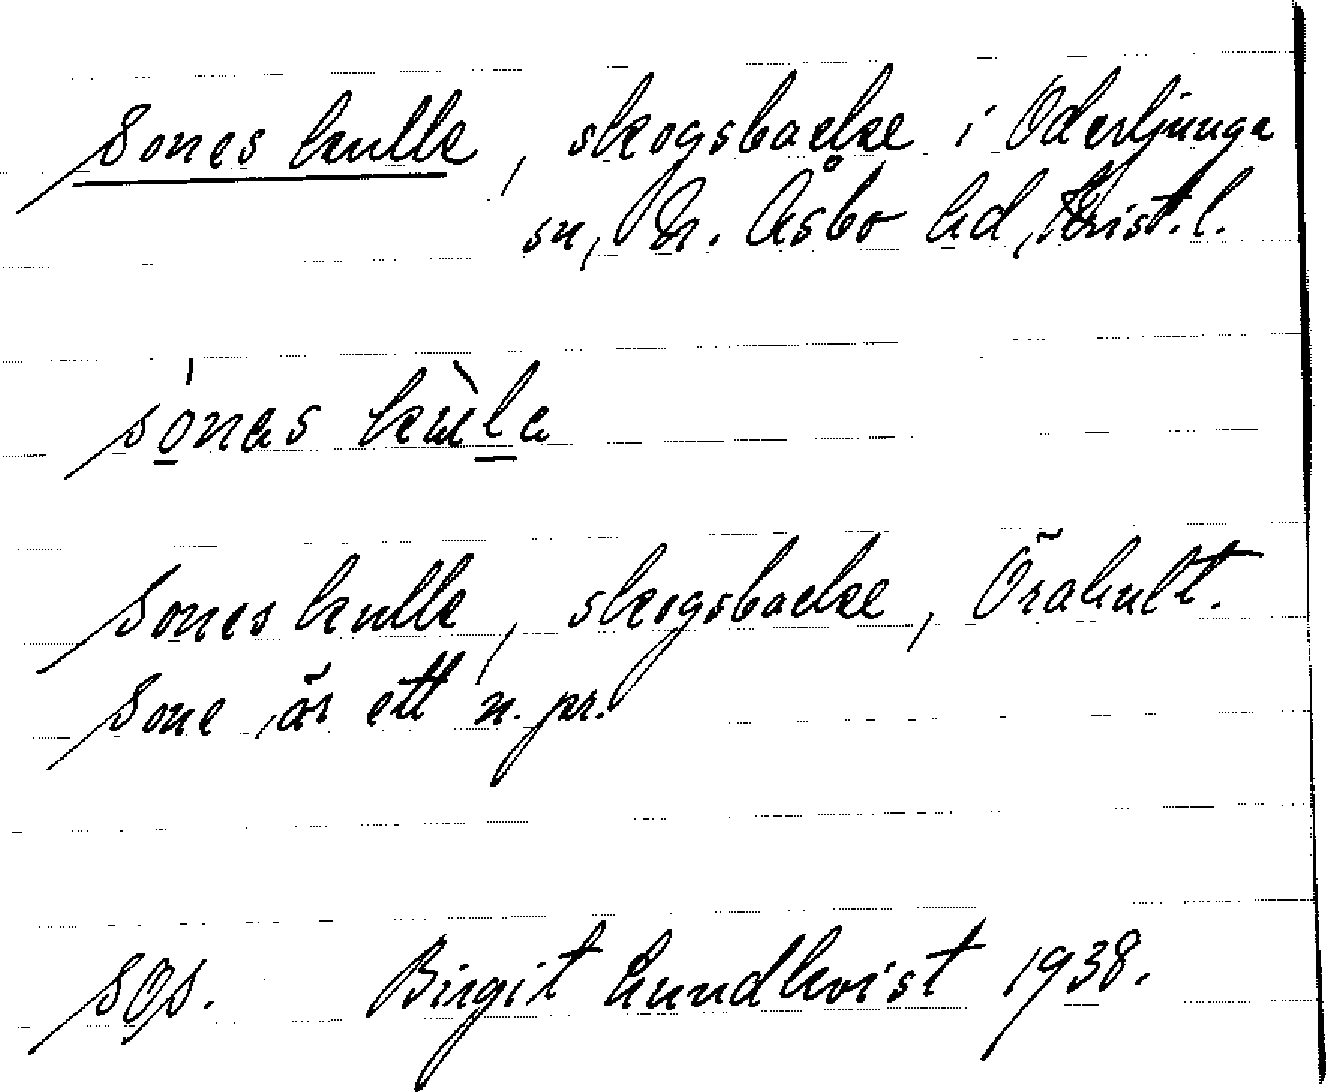 Sones kulle, skogsbacke i Oderljunga
sn, N. Åsbo hd, Krist. l.
sónas kùla
Sones kulle, skogsbacke, Örahult.
Sone är ett n. pr.
SOS. Birgit Lundkvist 1938.